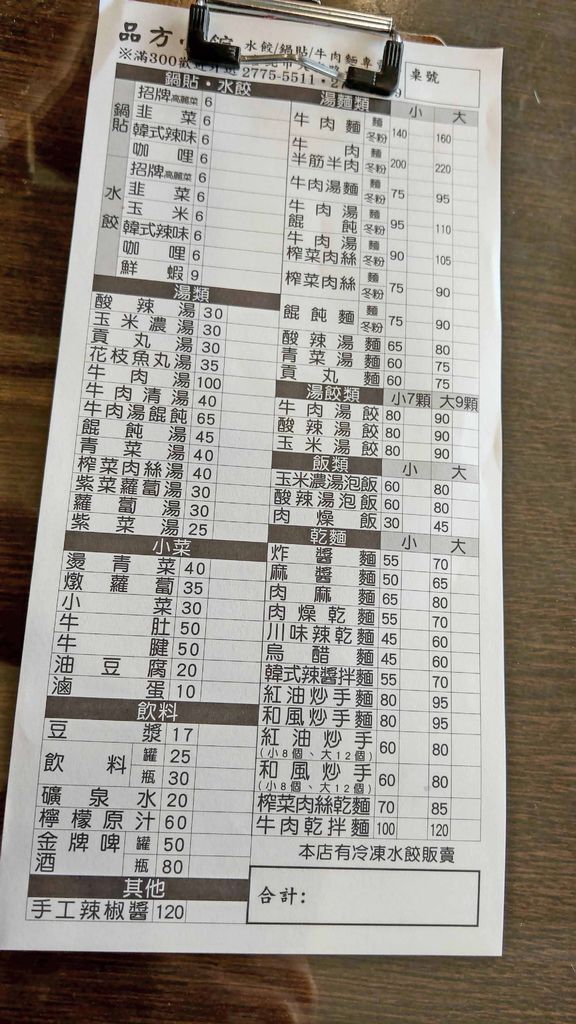 品方 水餃/鍋貼/牛肉麵專
※滿300 2775-5511‧2
桌號
鍋貼‧水餃
鍋貼
招牌高麗菜 6
韭菜 6
韓式辣味 6
咖哩 6
水餃
招牌高麗菜 6
韭菜 6
玉米 6
韓式辣味 6
咖哩 6
鮮蝦 9
湯類
酸辣湯 30
玉米濃湯 30
貢丸湯 30
花枝魚丸湯 35
牛肉湯 100
牛肉清湯 40
牛肉湯餛飩 65
餛飩湯 45
青菜湯 40
榨菜肉絲湯 40
紫菜蘿蔔湯 30
蘿蔔湯 30
紫菜湯 25
小菜
燙青菜 40
燉蘿蔔 35
小菜 30
牛肚 50
牛腱 50
油豆腐 20
滷蛋 10
飲料
豆漿 17
飲料 罐 25
瓶 30
礦泉水 20
檸檬原汁 60
金牌啤酒 罐 50
瓶 80
其他
手工辣椒醬 120
湯麵類 小 大
牛肉麵 麵 冬粉 140 160
牛肉半筋半肉 麵 冬粉 200 220
牛肉湯麵 麵 冬粉 75 95
牛肉湯餛飩 麵 冬粉 95 110
牛肉湯榨菜肉絲 麵 冬粉 90 105
榨菜肉絲 麵 冬粉 75 90
餛飩麵 麵 冬粉 75 90
酸辣湯麵 65 80
青菜湯麵 60 75
貢丸麵 60 75
湯餃類 小7顆 大9顆
牛肉湯餃 80 90
酸辣湯餃 80 90
玉米湯餃 80 90
飯類 小 大
玉米濃湯泡飯 60 80
酸辣湯泡飯 60 80
肉燥飯 30 45
乾麵 小 大
炸醬麵 55 70
麻醬麵 50 65
肉麻麵 65 80
肉燥乾麵 55 70
川味辣乾麵 45 60
烏醋麵 45 60
韓式辣醬拌麵 55 70
紅油炒手麵 80 95
和風炒手麵 80 95
紅油炒手 60 80
(小8個、大12個)
和風炒手 60 80
(小8個、大12個)
榨菜肉絲乾麵 70 85
牛肉乾拌麵 100 120
本店有冷凍水餃販賣
合計: